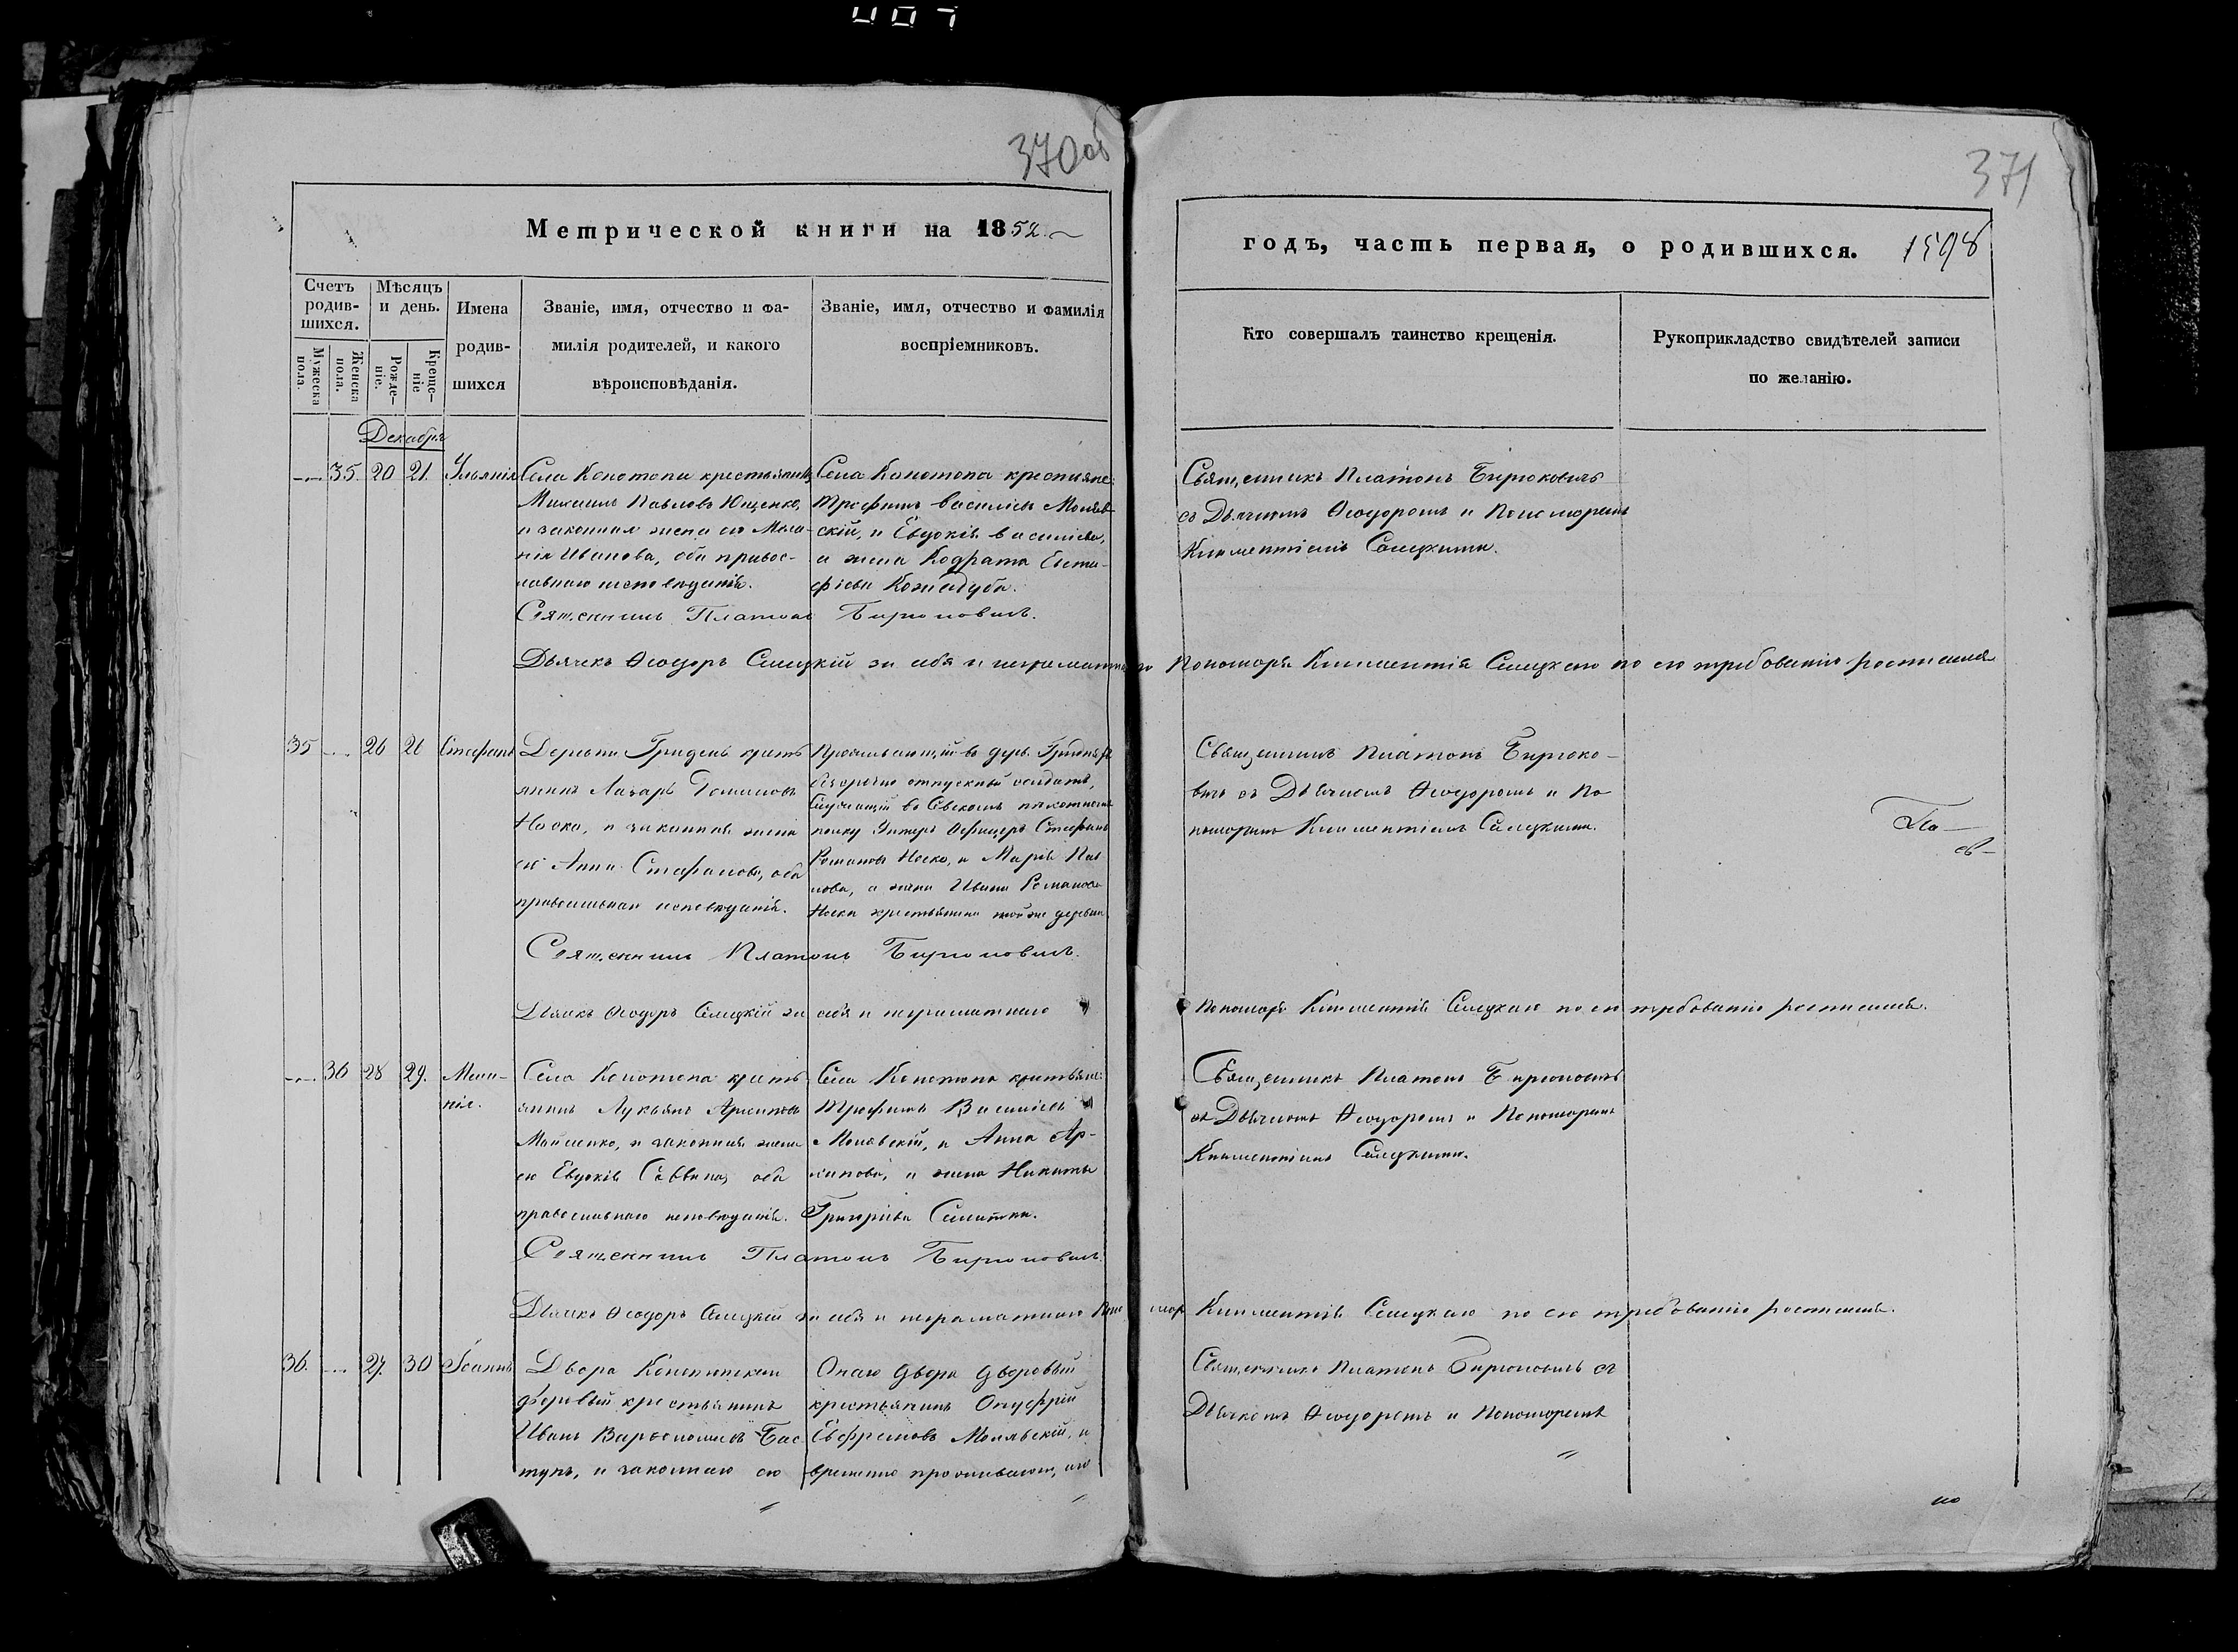 370 об
371
Метрической книги на 1852
годъ, часть первая, о родившихся. 1598
Счетъ родив-шихся.
Мужеска пола.
Женска пола.
Мѣсяцъ и день.
Рожде-ніе.
Креще-ніе
Имена родив-шихся
Званіе, имя, отчество и фа-
милія родителей, и какого
вѣроисповѣданія.
Званіе, имя, отчество и фамилія
воспріемниковъ.
Кто совершалъ таинство крещенія.
Рукоприкладство свидѣтелей записи
по желанію.
Декабря
35. 20 21. Ульянія
Села Конотопа крестьянинъ
Михаилъ Павловъ Ющенко,
и законная жена его Мела-
нія Иванова, оба правос-
лавнаго исповѣданія.
Села Конотопа крестьяне:
Трофимъ Васильевъ Моляв-
скій, и Евдокія Васильева,
а жена Кодрата Евста-
фіева Кожедуба.
Священникъ Платонъ Бирюковичъ
съ Дьячкомъ Ѳеодоромъ и Пономаремъ
Климентіемъ Селецкими.
Священникъ Платонъ Бирюковичъ.
Дьячекъ Ѳеодоръ Селецкій за себя и неграматнаго Пономаря Климентія Селецкаго по его требованію росписался
35 26 26 Стефанъ
Деревни Гридень кресть
янинъ Лазарь Романовъ
Носко, и законная жена
его Анна Стефанова, оба
православнаго исповѣданія.
Проживающій въ дер. Гридняхъ
безсрочно отпускный солдатъ,
Служащій въ Севскомъ пѣхотномъ
полку Унтеръ Офицеръ Стефанъ
Романовъ Носко, и Марія Пав
лова, а жена Ивана Романова
Носка крестьянина той же деревни
Священникъ Платонъ Бирюко-
вичъ съ Дьячкомъ Ѳеодоромъ и По
номаремъ Климентіемъ Селецкими.
Священникъ Платонъ Бирюковичъ.
Дьячекъ Ѳеодоръ Селецкій за себя и неграматнаго Пономаря Климентія Селецкаго по его требованію росписался.
36 28 29. Мела-
нія.
Села Конотопа кресть
янинъ Лукьянъ Архиповъ
Мойсенко, и законная жена
его Евдокія Саввина, оба
православнаго исповѣданія.
Села Конотопа крестьяне:
Трофимъ Васильевъ
Молявскій, и Анна Ар-
хипова, а жена Никиты
Григорьева
Священникъ Платонъ Бирюковичъ
съ Дьячкомъ Ѳеодоромъ и Пономаремъ
Климентіемъ Селецкими.
Священникъ Платонъ Бирюковичъ.
Дьячекъ Ѳеодоръ Селецкій за себя и неграматнаго Климентія Селецкаго по его требованію росписался.
36. 27. 30 Іоаннъ
Двора
дворовый крестьянинъ
Иванъ
тунъ, и законная его
Онаго двора дворовый
крестьянинъ Онуфрій
Евфремовъ Молявскій, и
временно
Священникъ Платонъ Бирюковичъ съ
Дьячкомъ Ѳеодоромъ и Пономаремъ